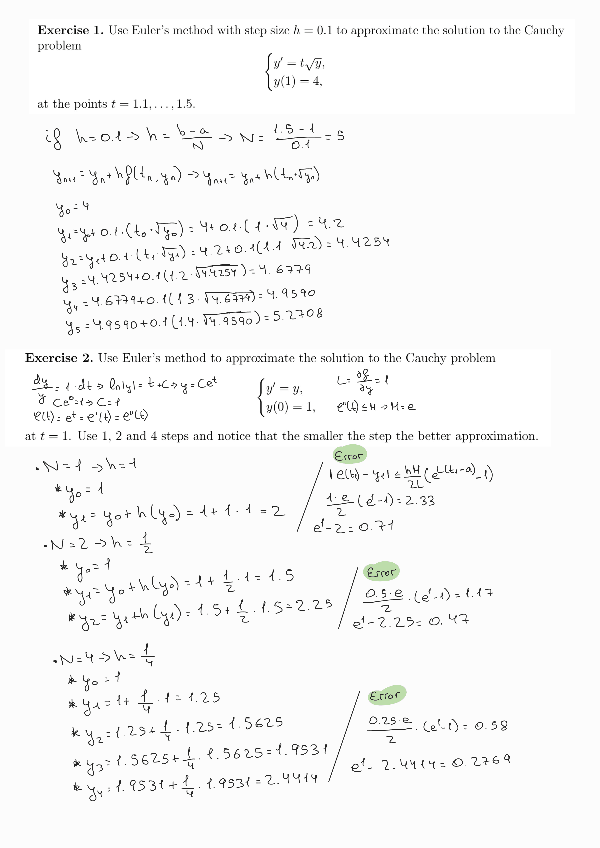 Exercise 1. Use Euler's method with step size h = 0.1 to approximate the solution to the Cauchy
problem
{ y' = t√y,
y(1) = 4,
at the points t = 1.1, . . . , 1.5.
if h=0.1 → h = (b-a)/N → N = (1.5-1)/0.1 = 5
yₙ₊₁ = yₙ + hf(tₙ, yₙ) → yₙ₊₁ = yₙ + h(tₙ·√yₙ)
y₀ = 4
y₁ = y₀ + 0.1·(t₀·√y₀) = 4 + 0.1·(1·√4) = 4.2
y₂ = y₁ + 0.1·(t₁·√y₁) = 4.2 + 0.1(1.1·√4.2) = 4.4254
y₃ = 4.4254 + 0.1(1.2·√4.4254) = 4.6779
y₄ = 4.6779 + 0.1(1.3·√4.6779) = 4.9590
y₅ = 4.9590 + 0.1(1.4·√4.9590) = 5.2708
Exercise 2. Use Euler's method to approximate the solution to the Cauchy problem
dy/y = 1·dt → ln|y| = t+C → y = Ceᵗ
Ce⁰ = 1 → C = 1
φ(t) = eᵗ = φ'(t) = φ''(t)
{ y' = y,
y(0) = 1,
L = ∂f/∂y = 1
φ''(t) ≤ M → M = e
at t = 1. Use 1, 2 and 4 steps and notice that the smaller the step the better approximation.
• N=1 → h=1
* y₀ = 1
* y₁ = y₀ + h(y₀) = 1 + 1·1 = 2
Error
|φ(t₁) - y₁| ≤ hM/2L (e^(L(t₁-a)) - 1)
1·e/2 (e¹-1) = 2.33
e¹ - 2 = 0.71
• N=2 → h = 1/2
* y₀ = 1
* y₁ = y₀ + h(y₀) = 1 + 1/2 · 1 = 1.5
* y₂ = y₁ + h(y₁) = 1.5 + 1/2 · 1.5 = 2.25
Error
0.5·e/2 · (e¹-1) = 1.17
e¹ - 2.25 = 0.47
• N=4 → h = 1/4
* y₀ = 1
* y₁ = 1 + 1/4 · 1 = 1.25
* y₂ = 1.25 + 1/4 · 1.25 = 1.5625
* y₃ = 1.5625 + 1/4 · 1.5625 = 1.9531
* y₄ = 1.9531 + 1/4 · 1.9531 = 2.4414
Error
0.25·e/2 · (e¹-1) = 0.58
e¹ - 2.4414 = 0.2769